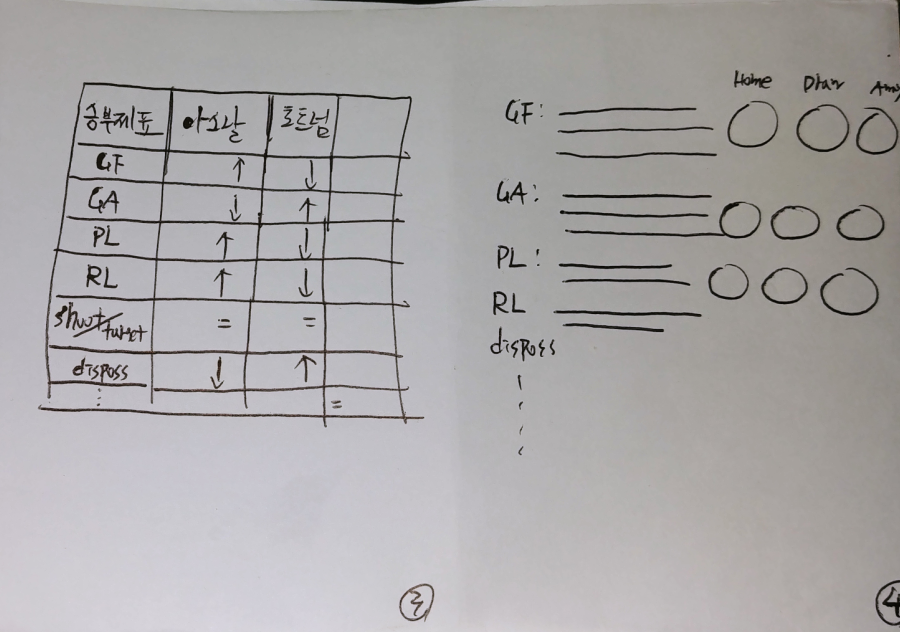 승부제표 아스날 토트넘
GF ↑ ↓
GA ↓ ↑
PL ↑ ↓
RL ↑ ↓
shoot/target = =
disposs ↓ ↑
⋮ =
③
Home Draw Away
GF:
GA:
PL:
RL
disposs
④